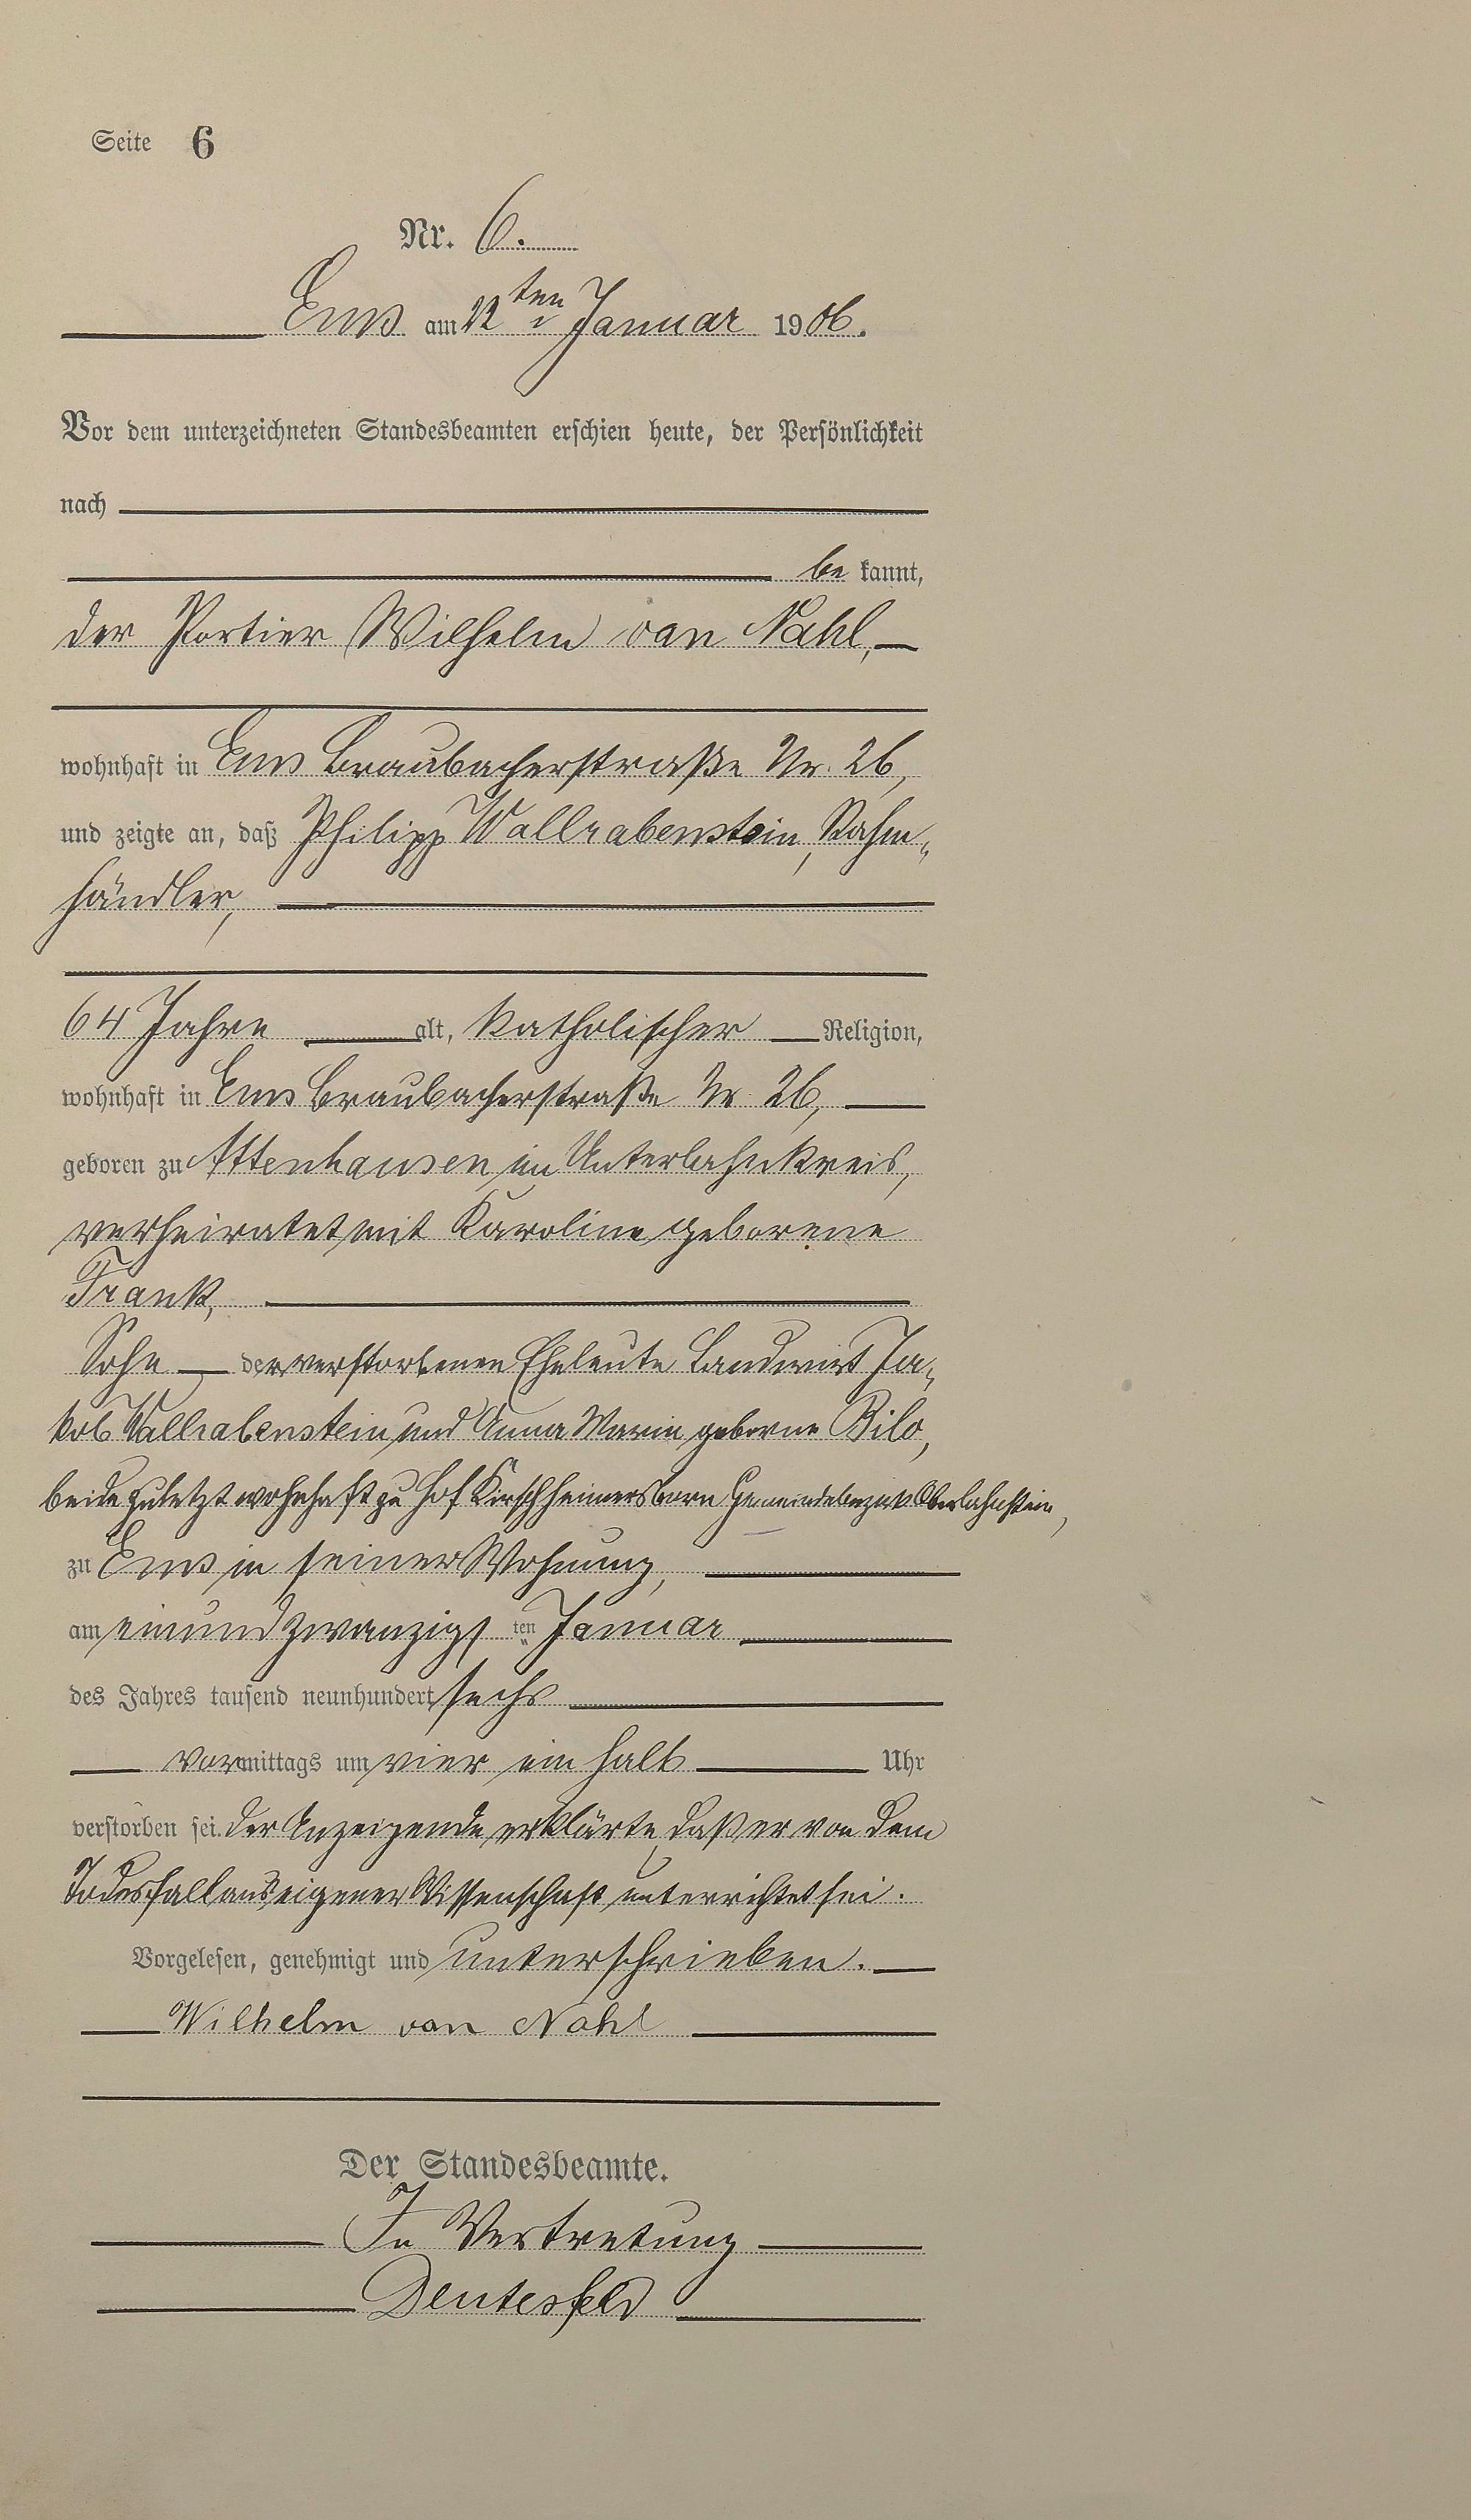 Seite 6
Nr. 6.
Ems am 22ten Januar 1906.
Vor dem unterzeichneten Standesbeamten erschien heute, der Persönlichkeit
nach
be kannt,
der Portier Wilhelm van Nahl,
wohnhaft in Ems Braubacherstraße Nr. 26,
und zeigte an, daß Philipp Wallrabenstein, Rahm-
händler,
64 Jahre alt, katholischer Religion,
wohnhaft in Ems Braubacherstraße Nr. 26,
geboren zu Attenhausen im Unterlahnkreis,
verheiratet mit Karoline geborene
Frank,
Sohn der verstorbenen Eheleute Landwirt Ja-
kob Wallrabenstein und Anna Maria geborne Bilo,
beide zuletzt wohnhaft zu Hof Kirschheimersborn Gemeindebezirk Oberlahnstein,
zu Ems in seiner Wohnung,
am einundzwanzigs ten Januar
des Jahres tausend neunhundert sechs
vormittags um vier ein halb Uhr
verstorben sei. Der Anzeigende erklärte, daß er von dem
Todesfall aus eigener Wissenschaft unterrichtet sei.
Vorgelesen, genehmigt und unterschrieben.
Wilhelm van Nahl
Der Standesbeamte.
In Vertretung